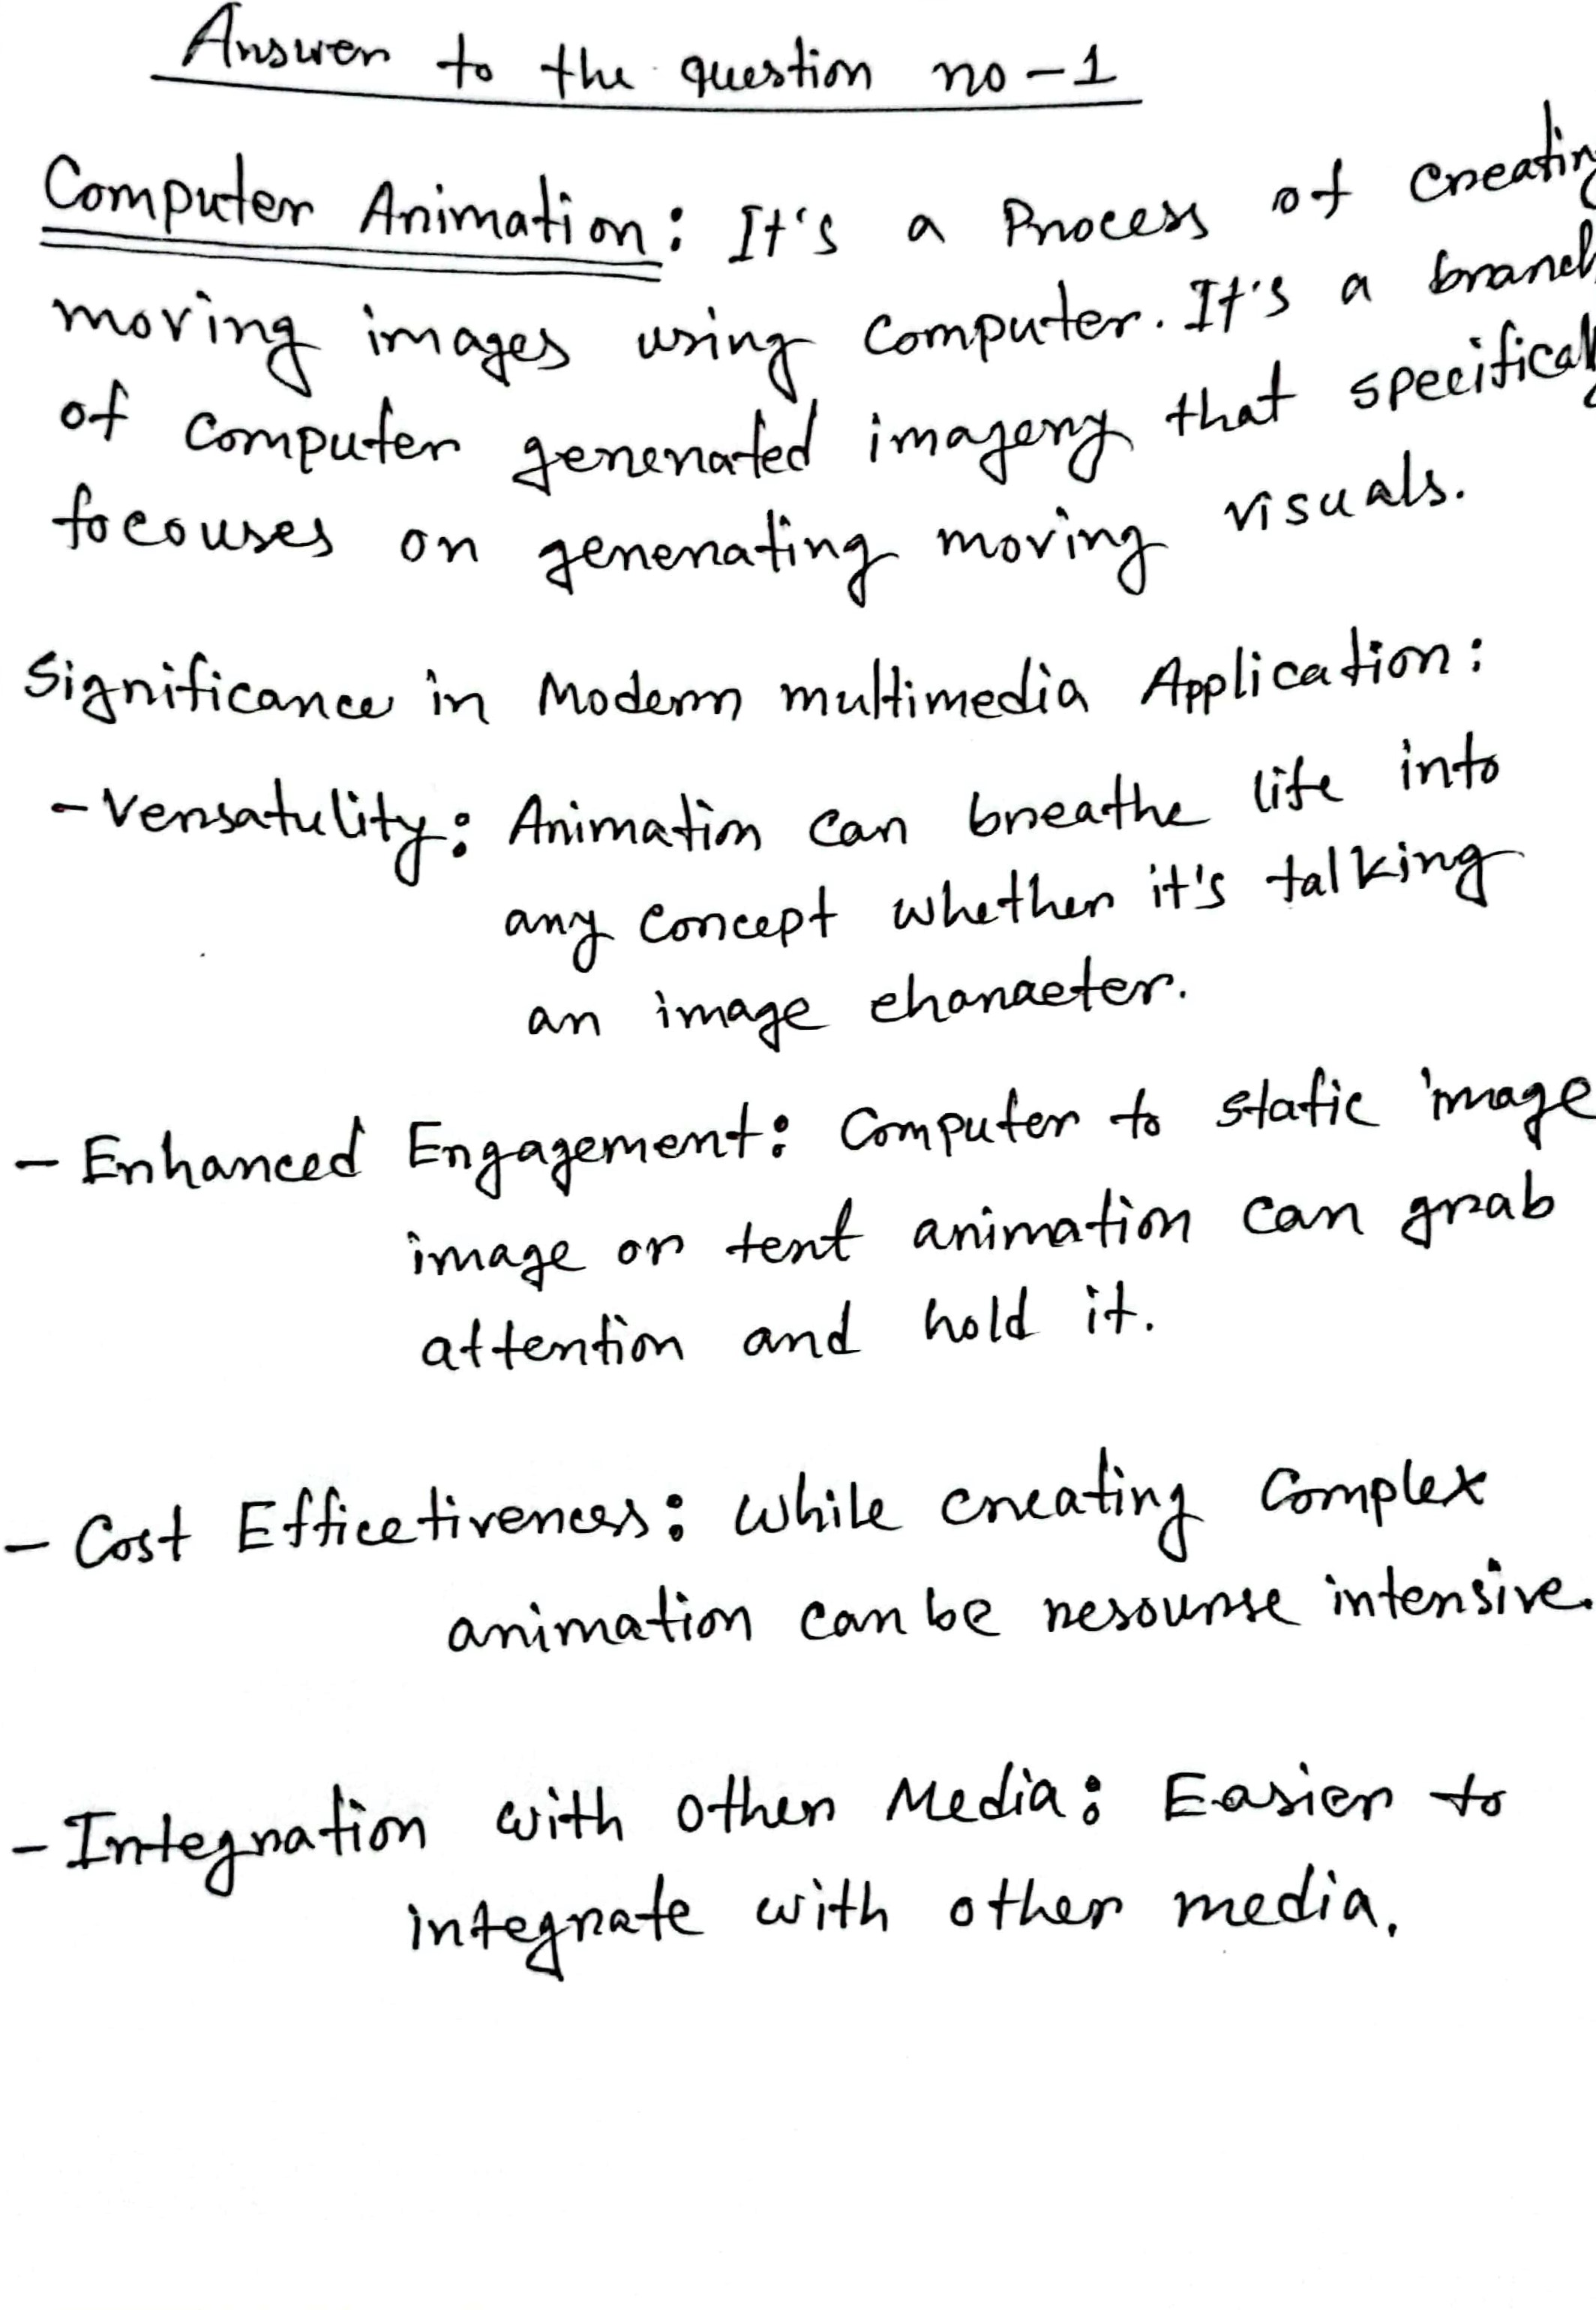 Answer to the question no-1
Computer Animation: It's a Process of creatin
moving images using computer. It's a branch
of computer generated imagery that specifical
focouses on generating moving visuals.
Significance in Modern multimedia Application:
- Versatulity: Animation can breathe life into
any concept whether it's talking
an image character.
- Enhanced Engagement: Computer to static image
image or text animation can grab
attention and hold it.
- Cost Efficetiveness: While creating Complex
animation can be resourse intensive.
- Integration with other Media: Easier to
integrate with other media.